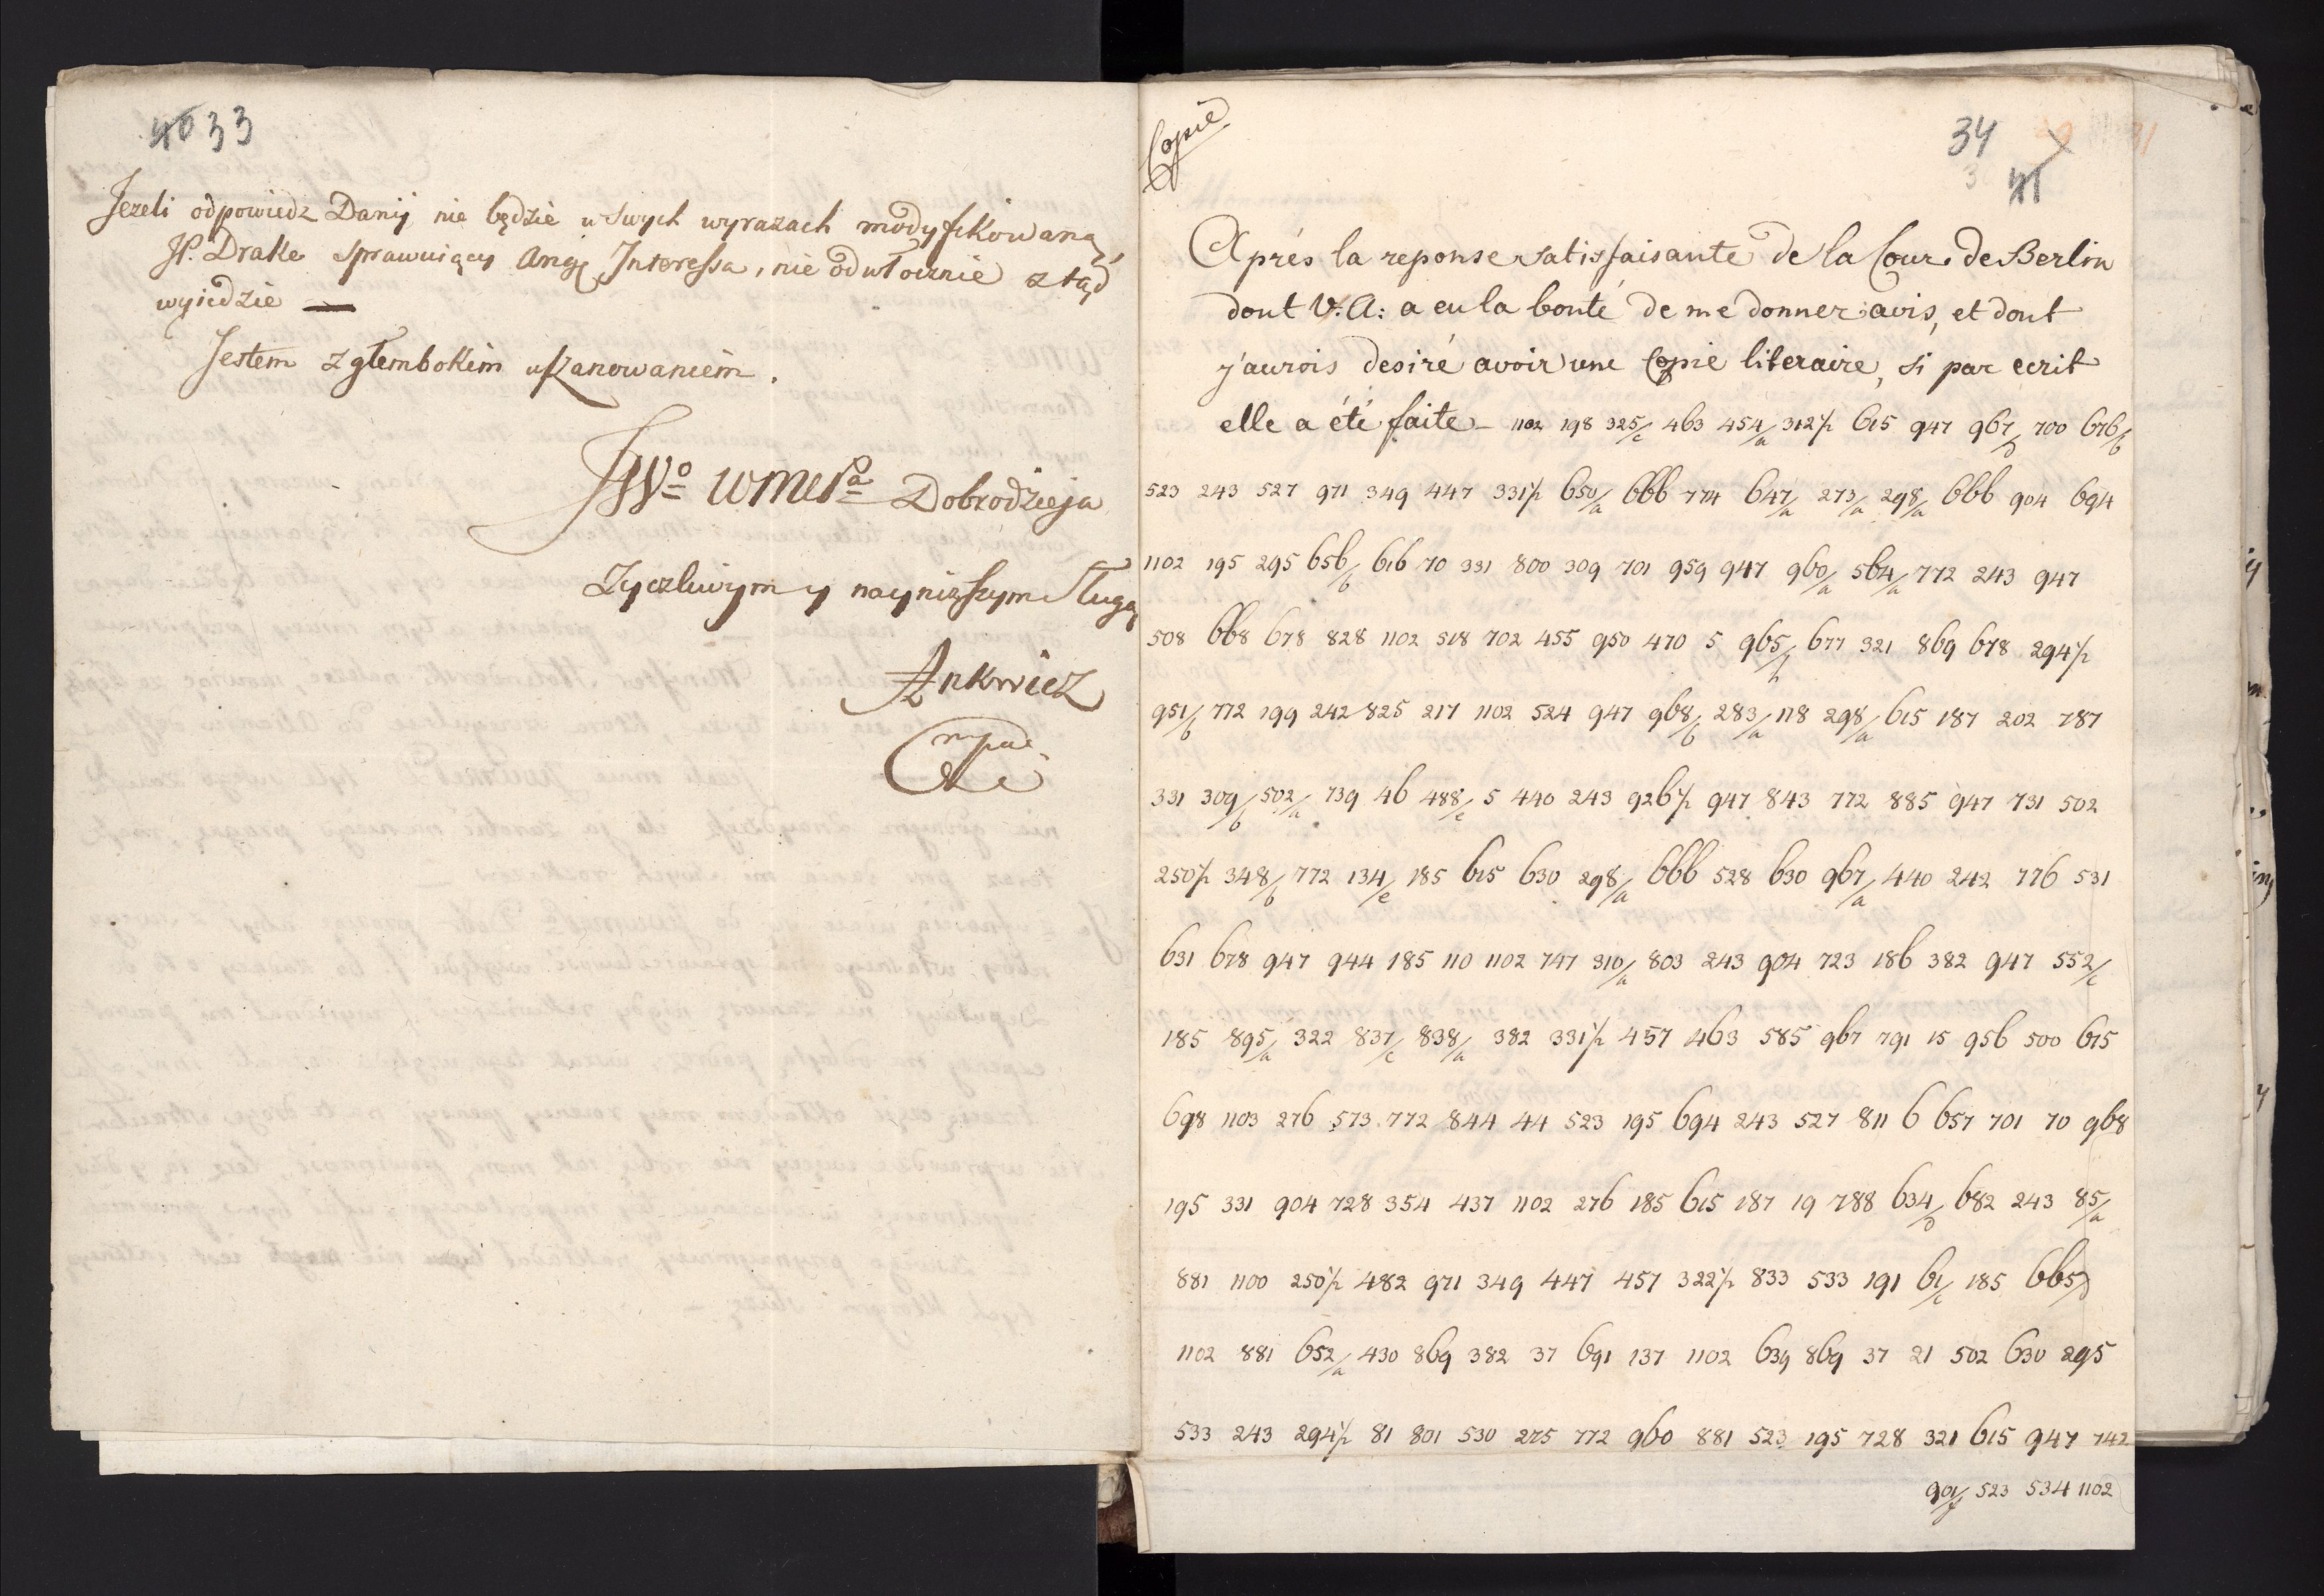 40 33
Jezeli odpowiedz Danij nie będzie w swych wyrazach modyfikowaną,
JP. Drake sprawuiący Angę Interessa, nie odwłocznie ztąd
wyiedzie —
Jestem z głembokim uszanowaniem.
JWo WMPa Dobrodzieja
Zyczliwym y naynizszym sługą
Ankwicz
mpae
Copie
34
3
41
Aprés la reponse satisfaisante de la Cour de Berlin
dont V. A: a eu la bonté de me donner avis, et dont
j'aurois desiré avoir une Copie literaire, si par ecrit
elle a été faite – 1102 198 325/c 463 454/a 312/. 615 947 967/b 700 676/b
523 243 527 971 349 447 331/. 650/a 666 774 647/a 273/a 298/a 666 904 694
1102 195 295 656/b 616 70 331 800 309 701 959 947 960/a 564/a 772 243 947
508 668 678 828 1102 518 702 455 950 470 5 965/h 677 321 869 678 294/.
951/b 772 199 242 825 217 1102 524 947 968/b 283/a 118 298/a 615 187 202 787
331 309/b 502/a 739 46 488/c 5 440 243 926/. 947 843 772 885 947 731 502
250/. 348/b 772 134/e 185 615 630 298/a 666 528 630 967/a 440 242 776 531
631 678 947 944 185 110 1102 747 310/a 803 243 904 723 186 382 947 552/c
185 895/a 322 837/c 838/a 382 331/. 457 463 585 967 791 15 956 500 615
698 1103 276 573 772 844 44 523 195 694 243 527 811 6 657 701 70 968
195 331 904 728 354 437 1102 276 185 615 187 19 788 634/b 682 243 85/a
881 1100 250/. 482 971 349 447 457 322/. 833 533 191 61/c 185 665/b
1102 881 652/a 430 869 382 37 691 137 1102 639 869 37 21 502 630 295
533 243 294/. 81 801 530 275 772 960 881 523 195 728 321 615 947 742
901/f 523 534 1102